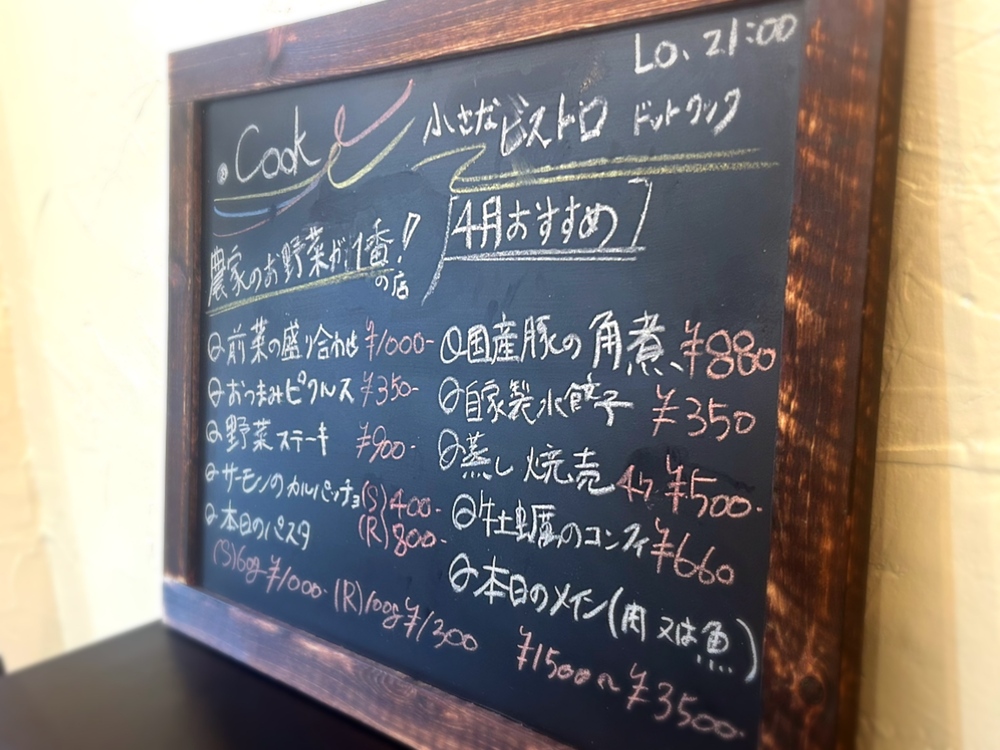 Lo. 21:00
.Cook 小さなビストロ ドットクック
農家のお野菜が1番!
の店
[4月おすすめ]
前菜の盛り合わせ ¥1000-
おつまみピクルス ¥350-
野菜ステーキ ¥900-
サーモンのカルパッチョ(S)400-
(R)800-
本日のパスタ
(S)60g ¥1000- (R)100g ¥1300
国産豚の角煮、¥880
自家製水餃子 ¥350
蒸し焼売 4ヶ ¥500-
牡蠣のコンフィ ¥660
本日のメイン(肉又は魚)
¥1500~¥3500-